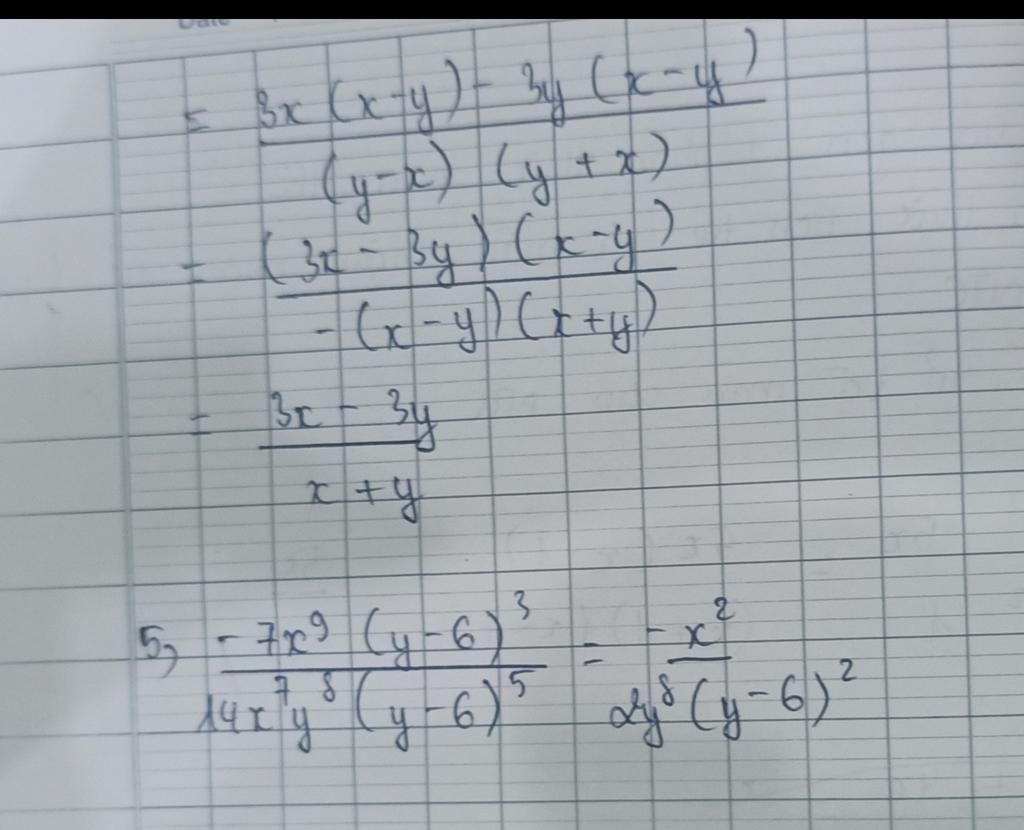 Date
= \frac{3x(x-y) - 3y(x-y)}{(y-x)(y+x)}
= \frac{(3x-3y)(x-y)}{-(x-y)(x+y)}
= \frac{3x-3y}{x+y}
5, \frac{-7x^9(y-6)^3}{14x^7y^8(y-6)^5} = \frac{-x^2}{2y^8(y-6)^2}